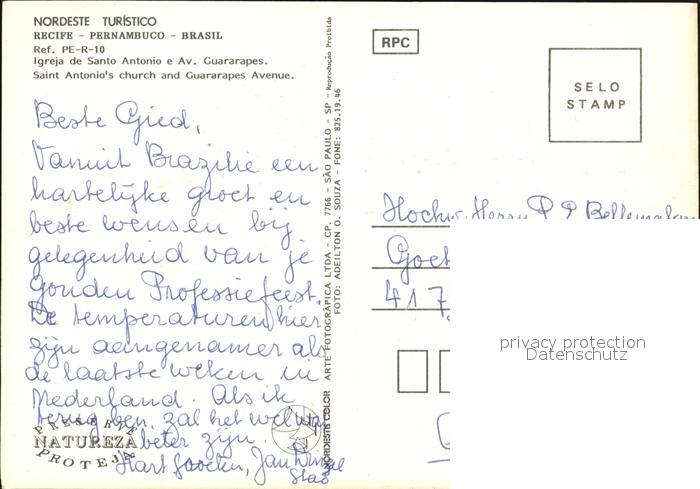 NORDESTE TURÍSTICO
RECIFE - PERNAMBUCO - BRASIL
Ref. PE-R-10
Igreja de Santo Antonio e Av. Guararapes.
Saint Antonio's church and Guararapes Avenue.
Beste Gied,
Vanuit Brazilië een
hartelijke groet en
beste wensen bij
gelegenheid van je
Gouden Professiefeest.
De temperaturen hier
zijn aangenamer als
de laatste weken in
Nederland. Als ik
terug ben, zal het wel wat
beter zijn.
Hart. groeten, Jan
PRESERVE
NATUREZA
PROTEJA
NORDESTE COLOR ARTE FOTOGRÁFICA LTDA - CP. 7766 - SÃO PAULO - SP - Reprodução Proibida
FOTO: ADEILTON O. SOUZA - FONE: 825.19.46
RPC
SELO
STAMP
Herrn P.
Goet
417
privacy protection
Datenschutz